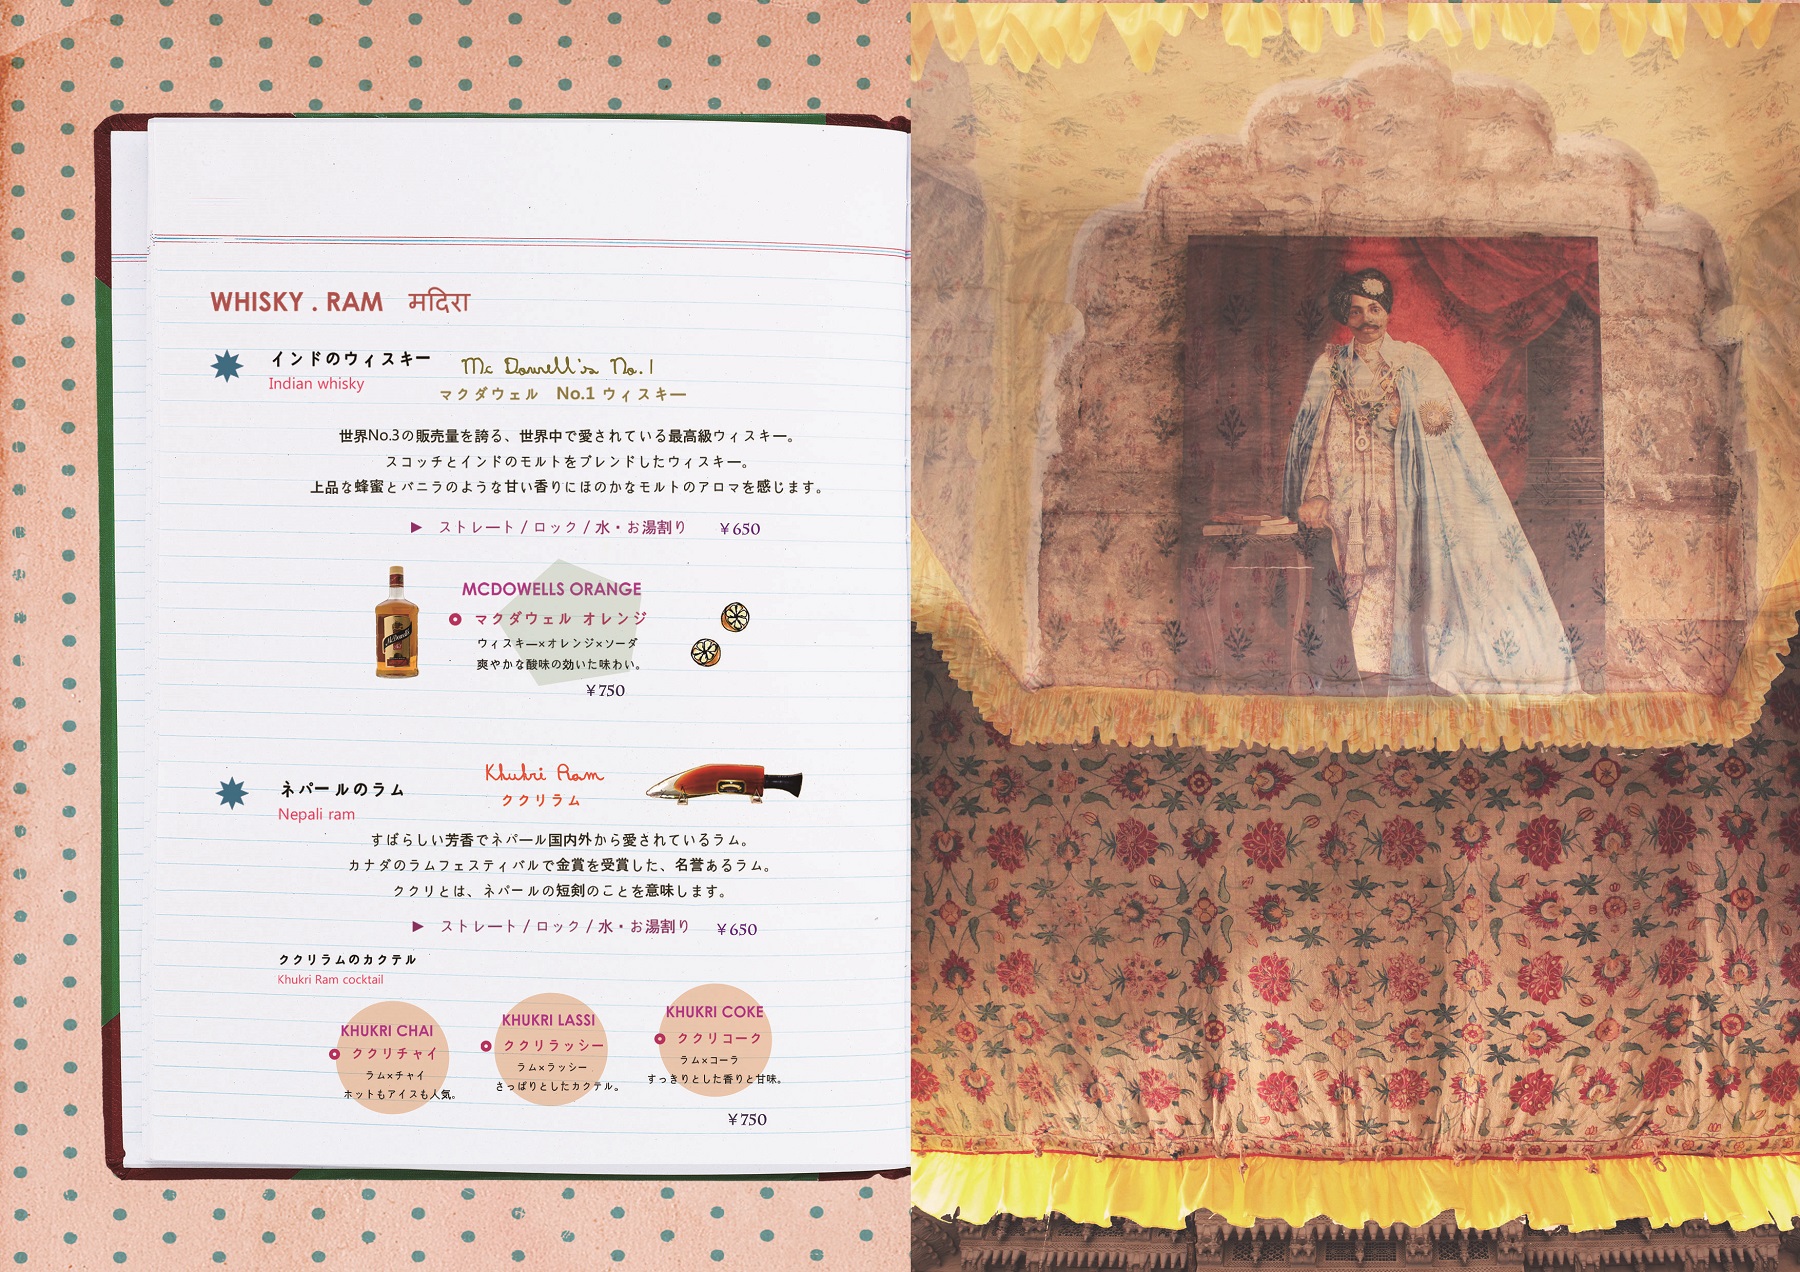 WHISKY . RAM मदिरा
インドのウィスキー
Indian whisky
Mc Dowell's No.1
マクダウェル No.1 ウィスキー
世界No.3の販売量を誇る、世界中で愛されている最高級ウィスキー。
スコッチとインドのモルトをブレンドしたウィスキー。
上品な蜂蜜とバニラのような甘い香りにほのかなモルトのアロマを感じます。
▶ ストレート / ロック / 水・お湯割り ￥650
MCDOWELLS ORANGE
マクダウェル オレンジ
ウィスキー×オレンジ×ソーダ
爽やかな酸味の効いた味わい。
￥750
ネパールのラム
Nepali ram
Khukri Ram
ククリラム
すばらしい芳香でネパール国内外から愛されているラム。
カナダのラムフェスティバルで金賞を受賞した、名誉あるラム。
ククリとは、ネパールの短剣のことを意味します。
▶ ストレート / ロック / 水・お湯割り ￥650
ククリラムのカクテル
Khukri Ram cocktail
KHUKRI CHAI
ククリチャイ
ラム×チャイ
ホットもアイスも人気。
KHUKRI LASSI
ククリラッシー
ラム×ラッシー
さっぱりとしたカクテル。
KHUKRI COKE
ククリコーク
ラム×コーラ
すっきりとした香りと甘味。
￥750